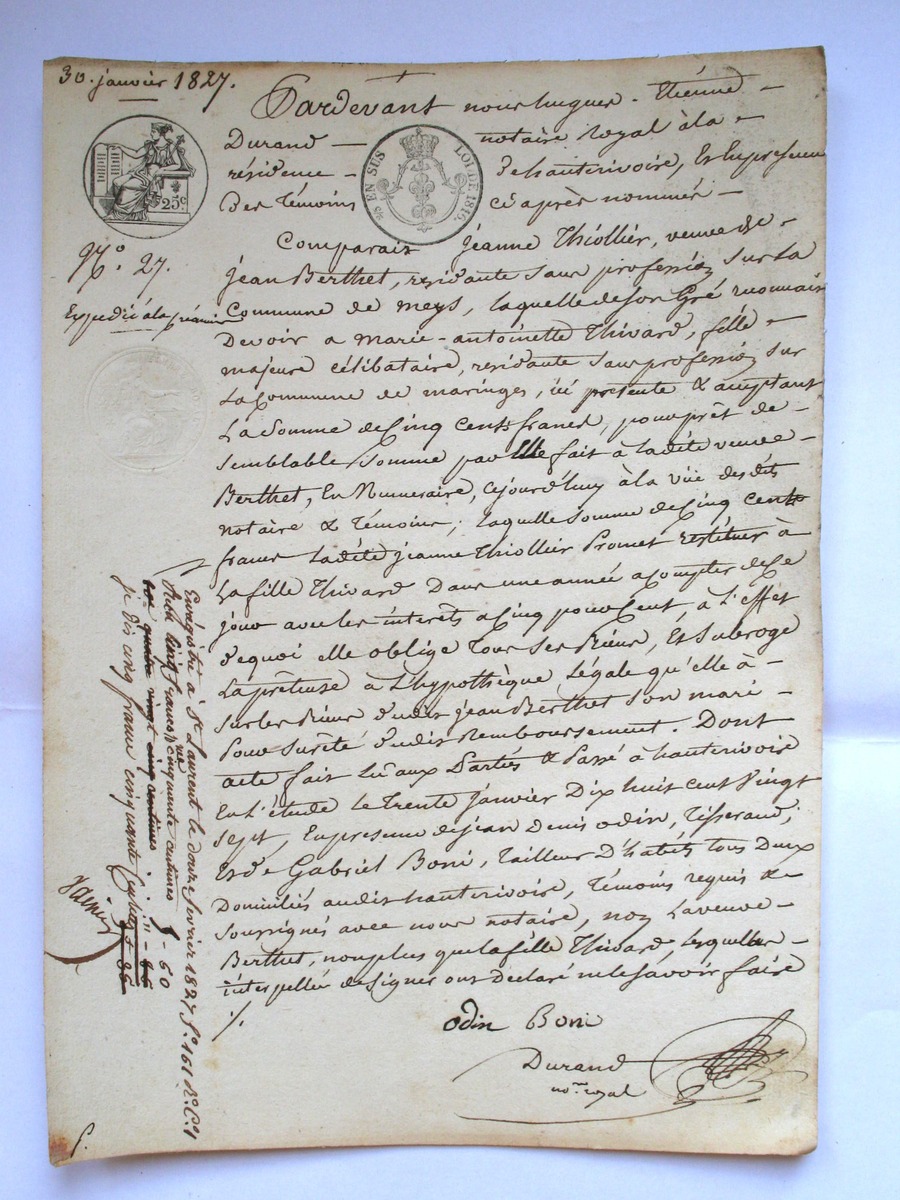 30. janvier 1827.
Pardevant nous hugues - Etienne -
Durand - notaire royal à la -
résidence - de hauterivoire, Et En presence
Des Témoins ci après nommés -
25c
EN SUS LOI DE 1816.
Comparait Jeanne Thiollier, veuve de -
Jean Berthet, residante sans profession sur La
Commune de meys, laquelle de son Gré reconnait
Devoir a marie-antoinette Thivard, fille -
majeure célibataire, residante sans profession sur
La Commune de maringes, ici présente & acceptant
La Somme de Cinq Cents francs, pour prêt de -
semblable somme par Elle fait à Ladite veuve -
Berthet, En Numeraire, cejourd'huy à la vüe desdits
notaire & Témoins; laquelle somme de Cinq cents
francs Ladite jeanne Thiollier Promet restituer à
La fille Thivard Dans une année a Compter de Ce
jour avec les interêts a Cinq pour Cent, à L'effet
de quoi elle oblige Tous Ses Biens, Et Subroge
La prêteuse à L'hypothèque Légale qu'elle à -
Sur les Biens dudit jean Berthet Son mari -
Pour Sureté dudit Remboursement. Dont
acte fait Lu aux Parties & Passé à hauterivoire
En L'étude le Trente janvier Dix huit cent Vingt
sept, En presence de jean Denis odin, Tisserand,
Et de Gabriel Boni, Tailleur D'habits Tous Deux
Domiciliés audit hauterivoire, Témoins requis &
soussignés avec nous notaire, non La veuve -
Berthet, non plus que la fille Thivard, Lesquelles -
interpellées de signer ont Declaré ne le Savoir faire
./.
odin Boni
Durand
nore royal
No. 27.
Expedié à la
Enregistré à St Laurent le douze fevrier 1827 fo. 161 Ro. C. 1
Reçu cinq francs cinquante centimes 5 - 50
quatre vingt cinq centimes
je dis cinq francs cinquante